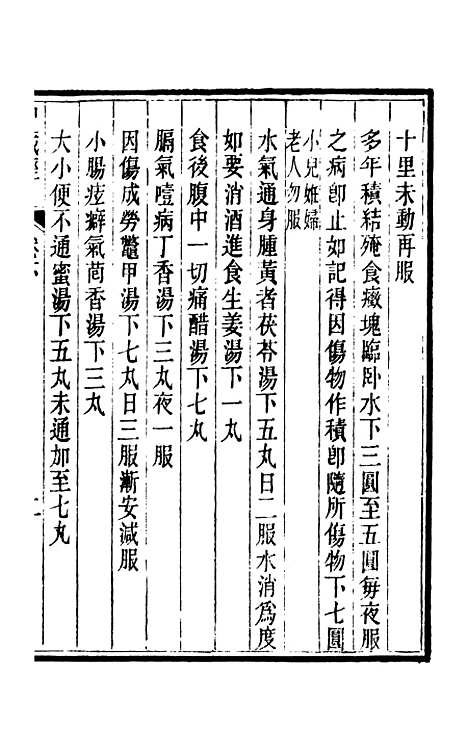 十里未動再服
多年積結殗食癥塊臨卧水下三圓至五圓每夜服
之病卽止如記得因傷物作積卽隨所傷物下七圓
小兒姙婦
老人勿服
水氣通身腫黃者茯苓湯下五丸日二服水消爲度
如要消酒進食生姜湯下一丸
食後腹中一切痛醋湯下七丸
膈氣噎病丁香湯下三丸夜一服
因傷成勞鼈甲湯下七丸日三服漸安減服
小腸痃癖氣茴香湯下三丸
大小便不通蜜湯下五丸未通加至七丸